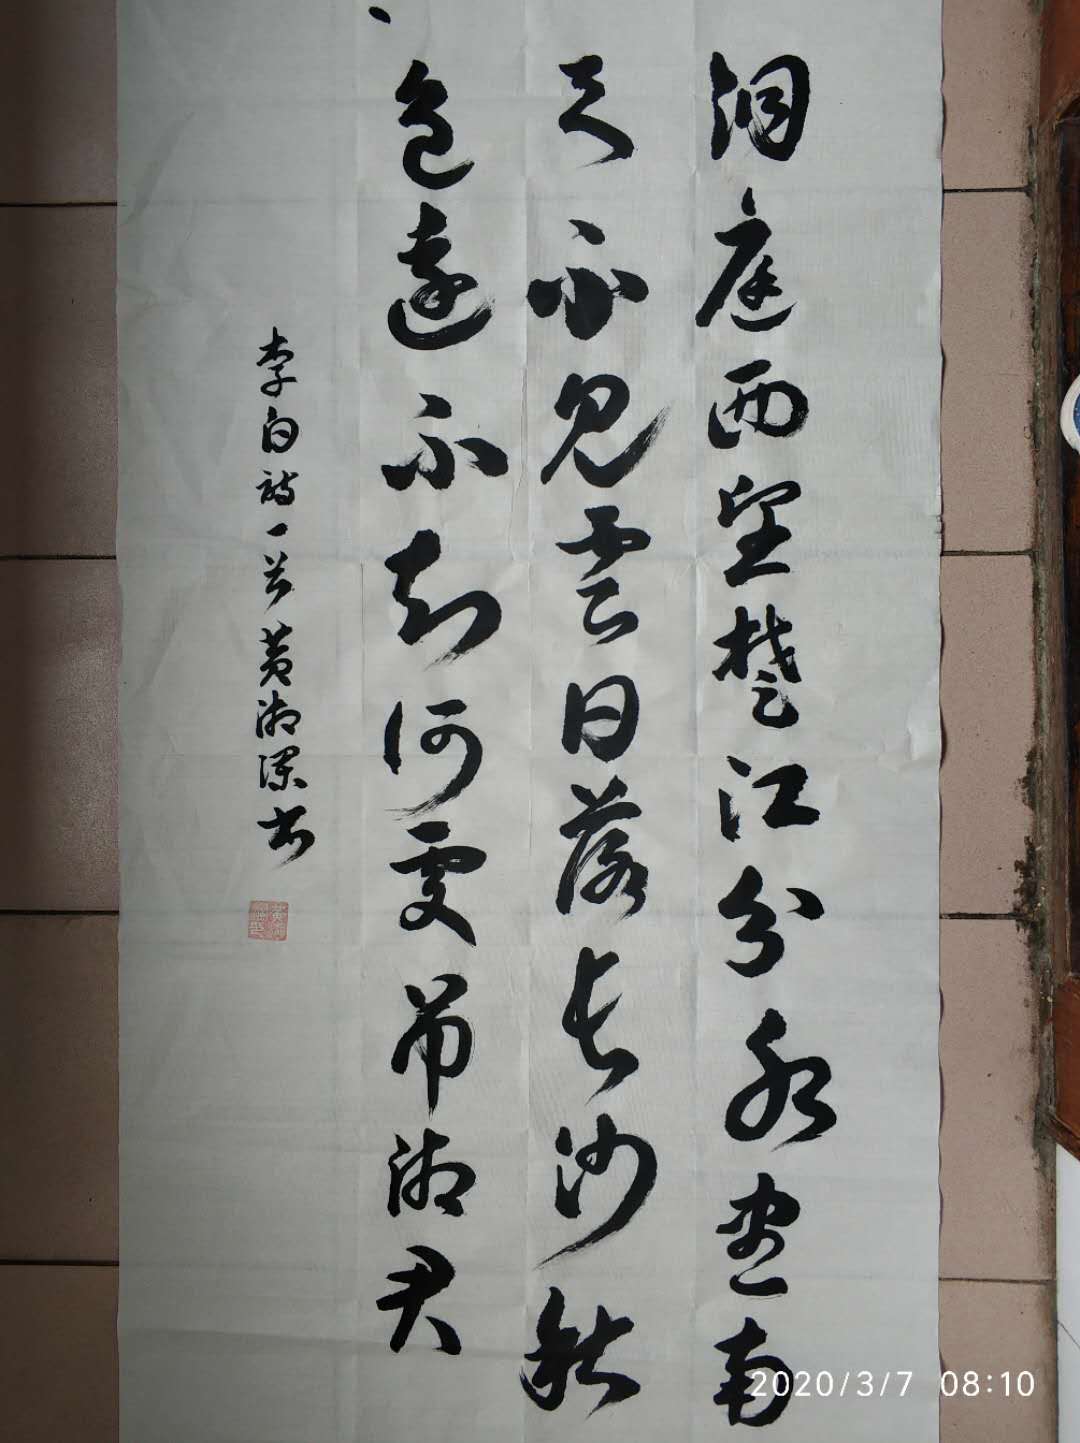 洞庭西望楚江分水尽南
天不见雲日落长沙秋
色遠不知何处吊湘君
李白诗一首黄湘深书
2020/3/7 08:10